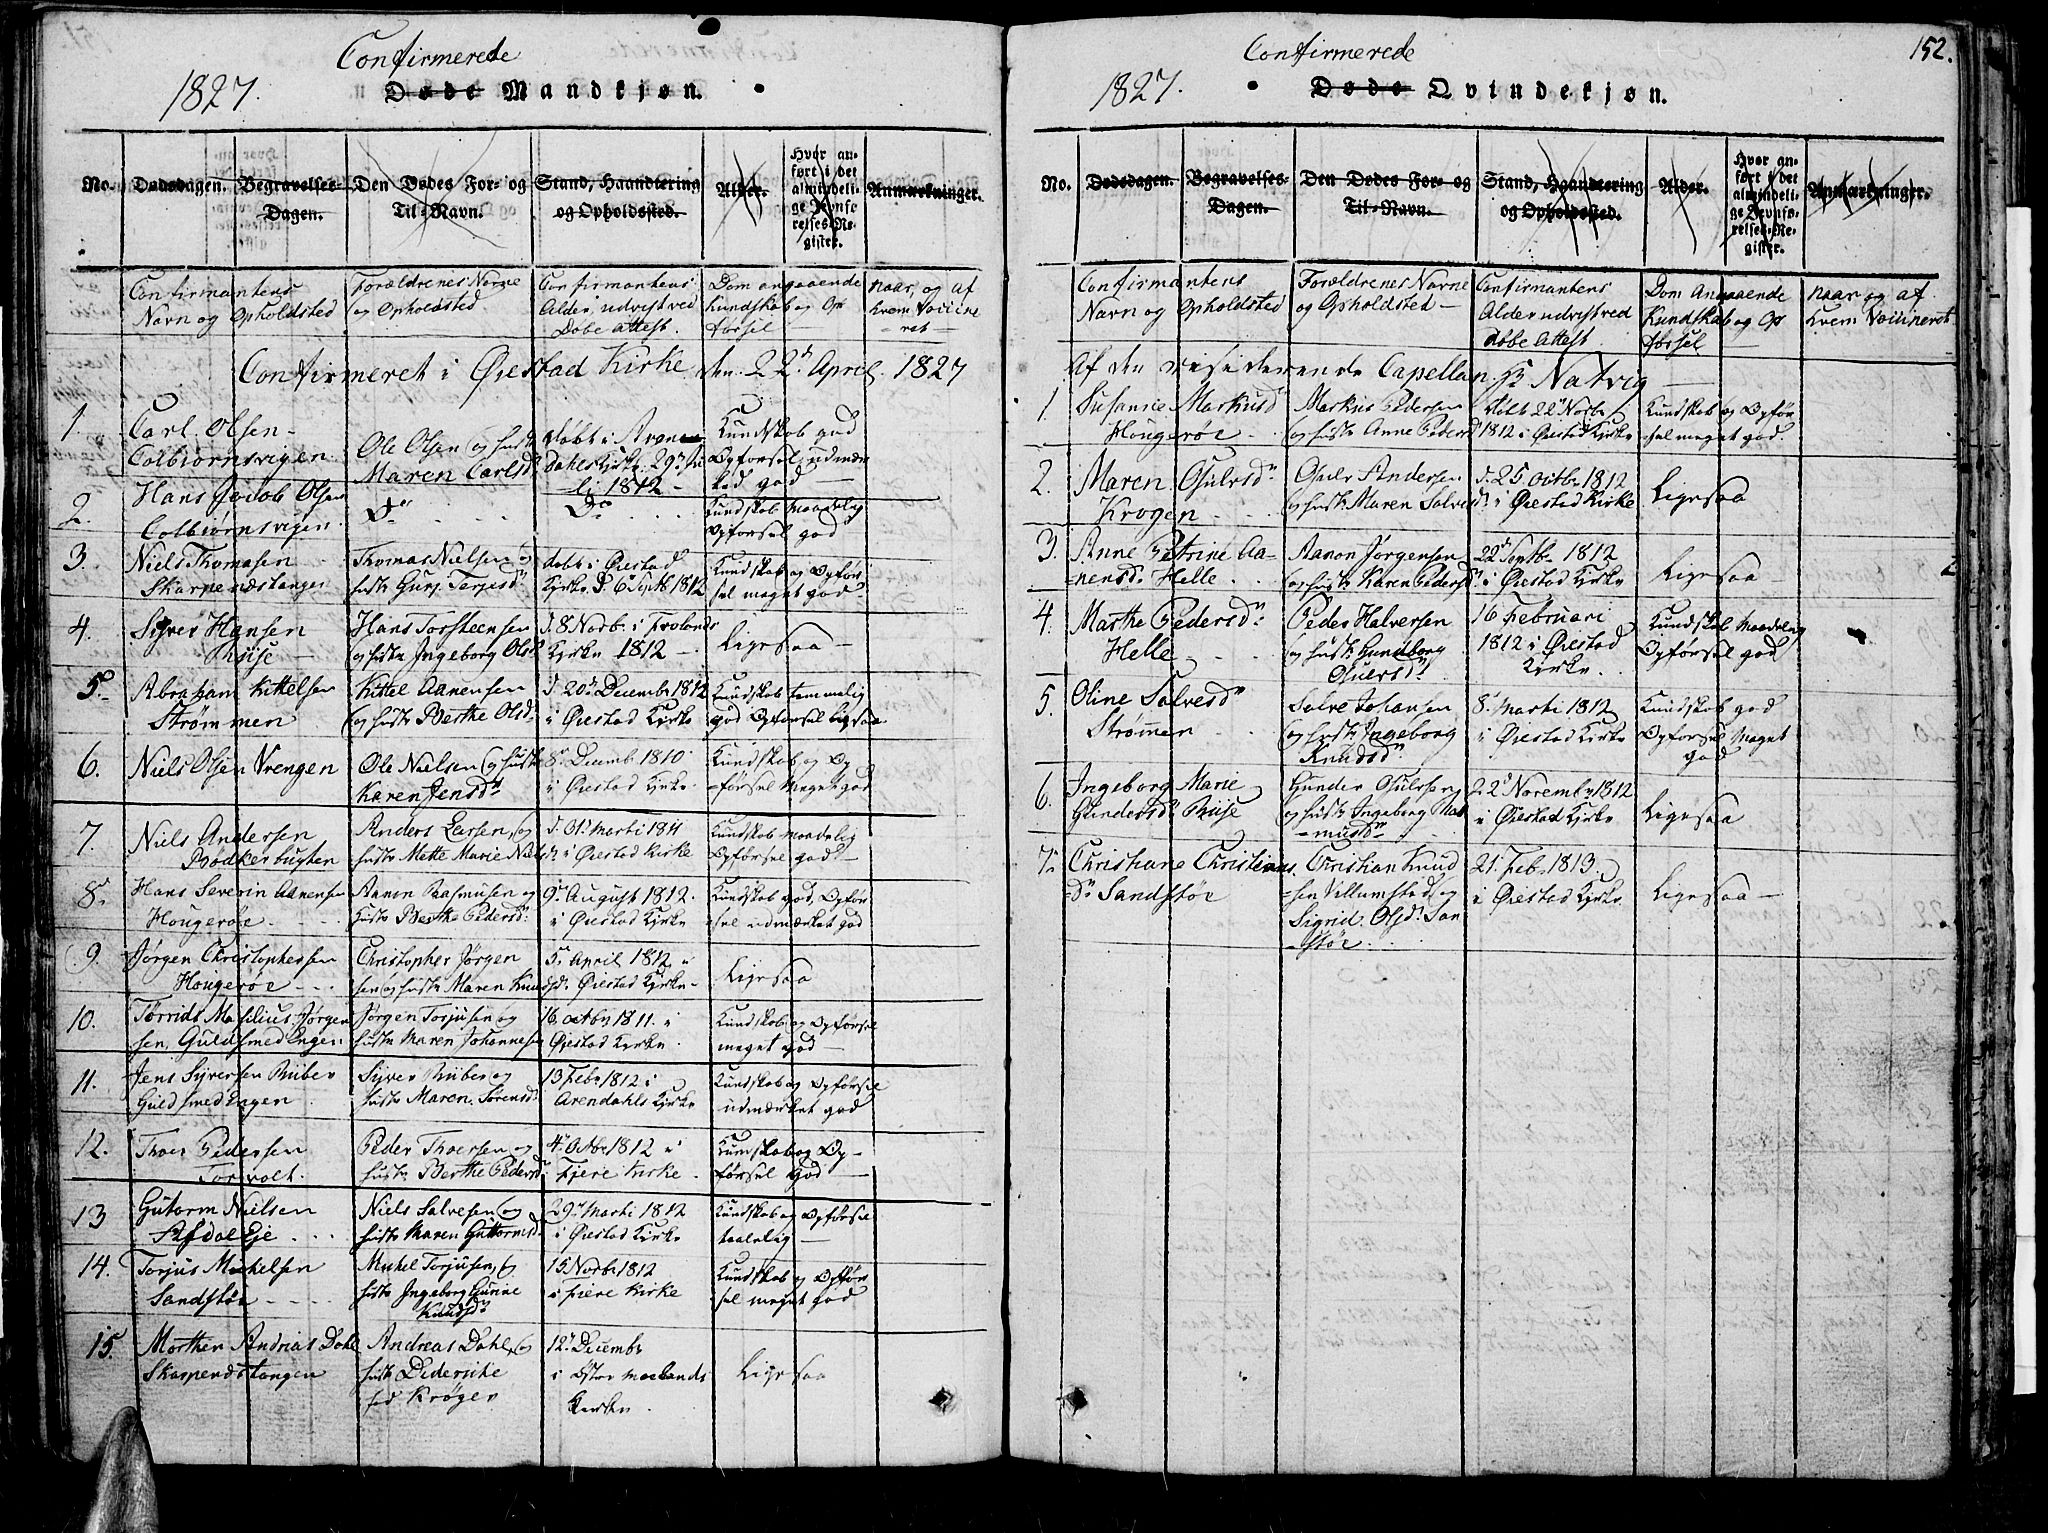 Confirmerede
1827. Døde Mandkjøn.
No. Dødsdagen. Begravelses-Dagen. Den Dødes For- og Til-Navn. Stand, Haandtering og Opholdssted. Alder. Hvor anført i det almindelige Jevnførelses-Register. Anmærkninger.
Confirmantens Navn og Opholdsted
Forældrenes Navne og Opholdsted
Confirmantens Alder, udvist ved Døbe Attest.
Dom angaaende Kundskab og Opførsel
naar, og af hvem Vaccineret
Confirmeret i Øiestad Kirke den 22de April 1827
1. Carl Olsen Colbiørnsvigen
Ole Olsen og hust: Maren Carlsd:
døbt i Arendahls Kirke 29
1812
Kundskab god Opførsel udmærked god
2. Hans Jacob Olsen Colbiørnsvigen
Do
Do
Kundskab maadelig Opførsel god
3. Niels Thomasen Skarpenæstangen
Thomas Nielsen og hust: Gurj Terjisd:
døbt i Øiestad Kirke d. 6 Septb 1812
Kundskab og Opførsel meget god
4. Siver Hansen
Hans Torsteensen og hust: Ingeborg Olsd:
d. 8 Novbr. i Frolands Kirke 1812
Ligesaa
5. Abraham Kittelsen Strømmen
Kittel Aanensen og hust: Berthe Olsd:
d. 20de Decembr 1812 i Øiestad Kirke
Kundskab temmelig god Opførsel ligesaa
6. Niels Olsen Vrengen
Ole Nielsen og hust: Karen Jensd:
8de Decemb. 1810 i Øiestad Kirke
Kundskab og Opførsel meget god
7. Niels Andersen Bødkerbugten
Anders Larsen og hust: Mette Marie Nielsd:
d. 31 Marti 1811 i Øiestad Kirke
Kundskab maadelig Opførsel god
8. Hans Severin Aanensen Hougerøe
Aanon Rasmusen og hust: Berthe Pedersd:
9de August 1812. i Øiestad Kirke
Kundskab god, Opførsel udmærket god
9. Jørgen Christophersen Hougerøe
Christopher Jørgensen og hust: Maren Knudsd:
5te April 1812 i Øiestad Kirke
Ligesaa
10. Jørgensen, Guldsmed Engen
Jørgen Torjusen og hust: Maren Johannesen
16 octbr 1811. i Øiestad Kirke
Kundskab og Opførsel meget god
11. Jens Siversen Riiber Guldsmed Engen
Siver Riiber og hust: Maren Sørensd:
13 Febr 1812 i Arendahls Kirke
Kundskab og Opførsel udmærket god
12. Thoer Pedersen Torvolt.
Peder Thoersen og hust: Berthe Pedersd:
4de Octbr 1812 i Fjere Kirke
Kundskab og Opførsel God
13 Gutorm Nielsen Afdal Eje
Niels Salvesen og hust: Maren Guttormsd:
29de Marti 1812 i Øiestad Kirke
Kundskab og Opførsel taalelig
14. Torjus Mikelsen Sandstøe
Mickel Torjusen, og hust: Ingeborg Gurine Knudsd:
15 Novbr 1812 i Fjere Kirke
Kundskab og Opførsel meget god
15. Morthen Andreas Dahl Skarpenæstangen
Andreas Dahl, og hust: Dideriche fød Krøger
12te Decembr i Øster Moelands Kirke
Ligesaa
152.
Confirmerede
1827. Døde Qvindekjøn.
No. Dødsdagen. Begravelses-Dagen. Den Dødes For- og Til-Navn. Stand, Haandtering og Opholdssted. Alder. Hvor anført i det almindelige Jevnførelses-Register. Anmærkninger.
Confirmantens Navn og Opholdsted
Forældrenes Navne og Opholdsted
Confirmantens Alder udvist ved døbe Attest.
Dom Angaaende Kundskab og Opførsel
naar og af hvem Vaccineret
Af den residerende Capellan Hr Natvig
1. Susanne Markusd: Hougerøe
Markus Pedersen og hust: Anne Pedersd:
døbt 22de Novbr 1812 i Øiestad Kirke
Kundskab og Opførsel meget god.
2. Maren Osulvsd: Krogen
Osulv Andersen og hust: Maren Salvesd:
d. 25. octbr 1812 i Øiestad Kirke
Ligesaa
3. Anne Petrine Aanensd: Helle
Aanon Jørgensen og hust: Karen Pedersd:
22de Septbr 1812 i Øiestad Kirke
Ligesaa
4. Marthe Pedersd: Helle
Peder Halversen og hust: Gundborg
16 Februari 1812 i Øiestad Kirke
Kundskab Maadelig Opførsel god
5. Oline Salvesd: Strømmen
Salve Johansen og hust: Ingeborg Knudsd:
8de Marti 1812 i Øiestad Kirke
Kundskab god Opførsel Meget god
6. Ingeborg Marie Gundersd: Riise
Gunder Osulvsen og hust: Ingeborg Rasmusd:
22de Novembr 1812 i Øiestad Kirke
Ligesaa
7. Christiane Christiansd: Sandstøe
Christian Knudsen Villumstad og Sigrid Olsd: Sanstøe
21. Feb. 1813. i Øiestad Kirke
Ligesaa